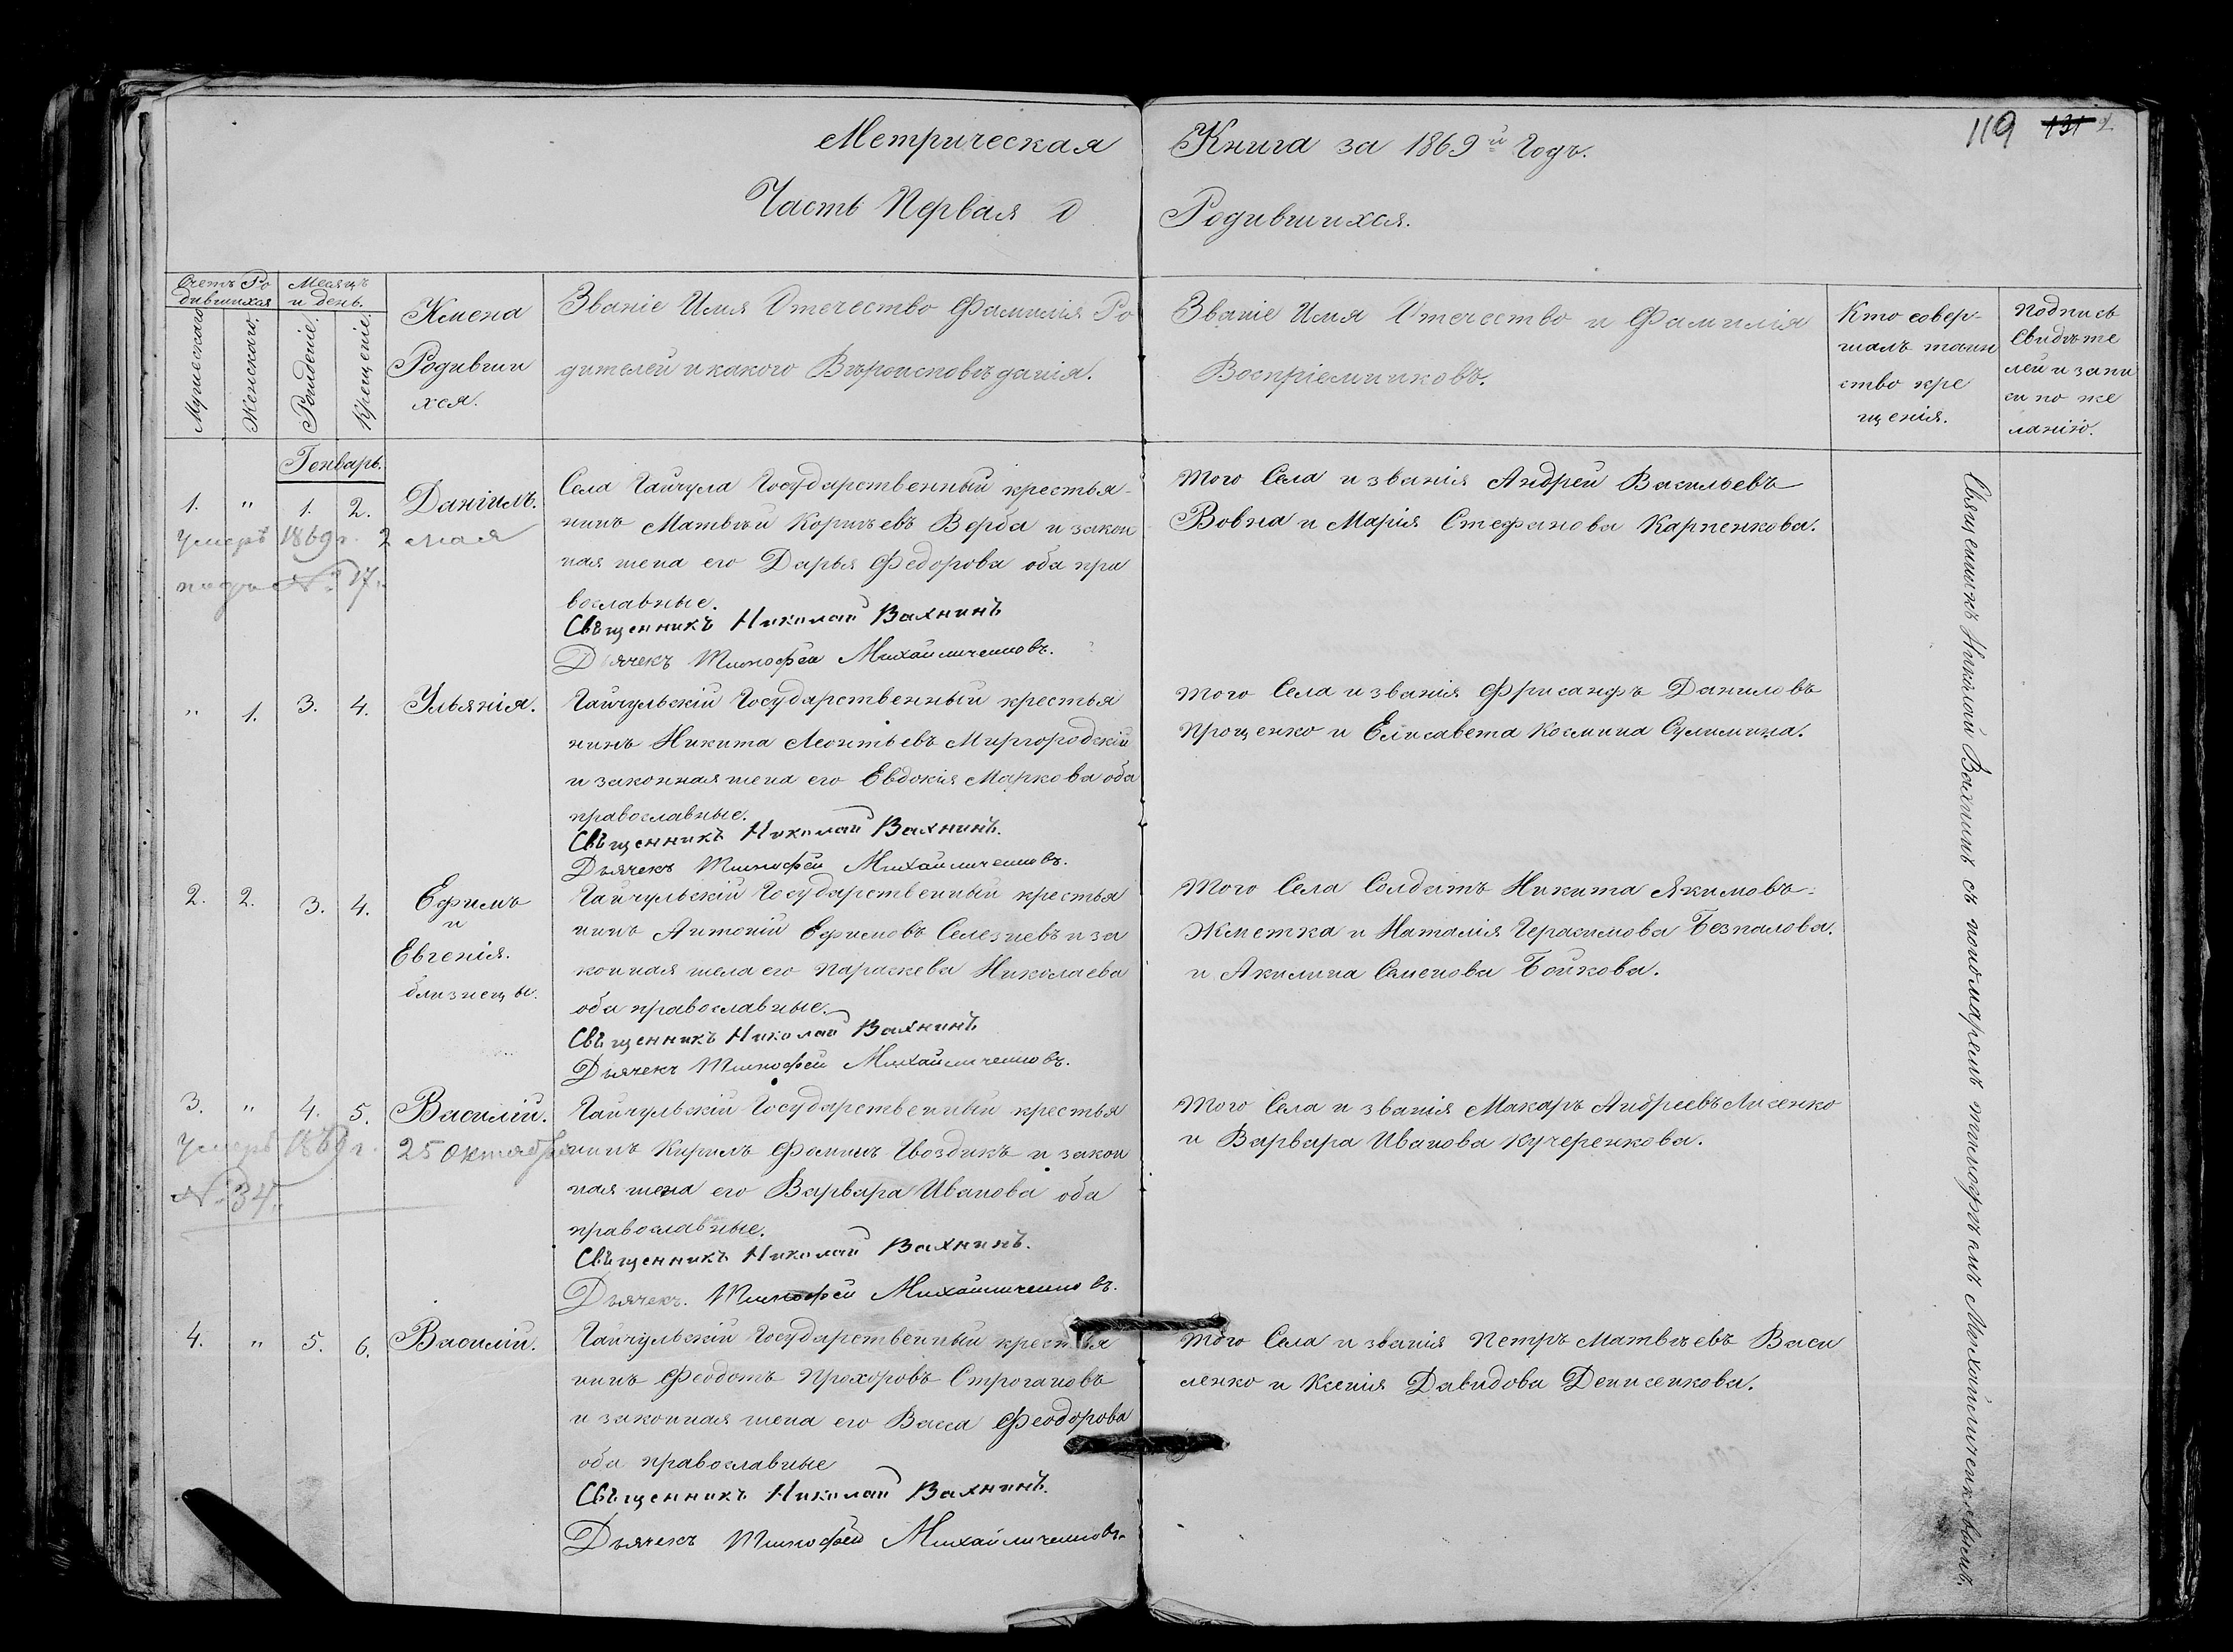 Метрическая Книга за 1869й Годъ.
119 131 2
Часть Первая О Родившихся.
Счетъ Ро
дившихся
Мужескаго.
Женскаго.
Месяцъ
и день.
Рожденіе.
Крещеніе.
Имена
Родивши
хся.
Званіе Имя Отечество Фамилія Ро
дителей и какого Вѣроисповѣданія.
Званіе Имя Отечество и Фамилія
Воспріемниковъ.
Кто совер-
шалъ таин
ство кре
щенія.
Подпись
Свидѣте
лей и запи
си по же
ланію.
Генварь.
1. " 1. 2. Даніилъ.
Умеръ 1869 г. 2 мая
подъ № 17.
Села Гайчула Государственный крестья-
нинъ Матвѣй Корнѣевъ Верба и закон
ная жена его Дарья Федорова оба пра
вославные.
Священникъ Николай Вахнинъ
Дьячекъ Тимофей Михайличенковъ.
Того Села и званія Андрей Васильевъ
Вовна и Марія Стефанова Карпенкова.
" 1. 3. 4. Ульянія.
Гайчульскій Государственный крестья
нинъ Никита Леонтьевъ Миргородскій
и законная жена его Евдокія Маркова оба
православные.
Священникъ Николай Вахнинъ.
Дьячекъ Тимофей Михайличенковъ.
Того Села и званія Фрисанфъ Даниловъ
Прощенко и Елисавета Космина Сулимина.
2. 2. 3. 4. Ефимъ
и
Евгенія.
близнецы.
Гайчульскій Государственный крестья
нинъ Антоній Ефимовъ Селезневъ и за
конная жена его Параскева Николаева
оба православные.
Священникъ Николай Вахнинъ
Дьячекъ Тимофей Михайличенковъ.
Того Села Солдатъ Никита Якимовъ
Жметка и Наталія Герасимова Безпалова.
и Акилина Семенова Бойкова.
3. " 4. 5. Василій.
Умеръ 1869 г. 25 Октября
№ 34.
Гайчульскій Государственный крестья
нинъ Кирилъ Фоминъ Гвоздикъ и закон
ная жена его Варвара Иванова оба
православные.
Священникъ Николай Вахнинъ.
Дьячекъ. Тимофей Михайличенковъ.
Того Села и званія Макаръ Андреевъ Лисенко
и Варвара Иванова Кучеренкова.
4. " 5. 6. Василій.
Гайчульскій Государственный крестья
нинъ Феодотъ Прохоровъ Строгановъ
и законная жена его Васса Феодорова
оба православные
Священникъ Николай Вахнинъ.
Дьячекъ Тимофей Михайличенковъ.
Того Села и званія Петръ Матвѣевъ Васи
ленко и Ксенія Давидова Денисенкова.
Священникъ Николай Вахнинъ съ пономаремъ Тимофѣемъ Михайличенковымъ.